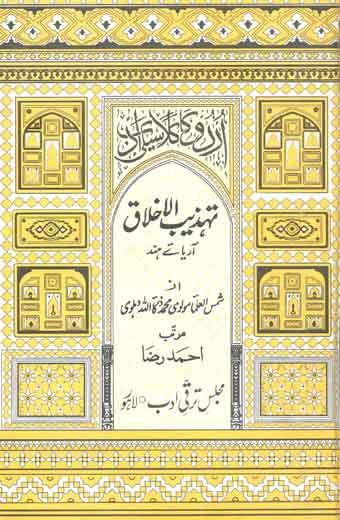 اُردو کا کلاسیکی ادب
تہذیب الاخلاق
آریائے ہند
از
شمس العلما مولوی محمد ذکاء اللہ دہلوی
مرتّب
احمد رضا
مجلسِ ترقیٔ ادب ○ لاہور